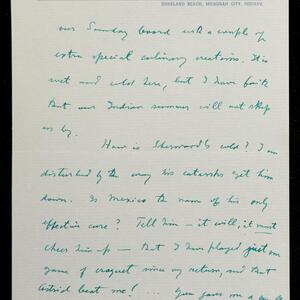 DUNELAND BEACH, MICHIGAN CITY, INDIANA
our Sunday board with a couple of
extra special culinary creations. It is
wet and cold here, but I have faith
that our Indian summer will not skip
us by.
How is Sherwood's cold? I am
disturbed by the way his catarrhs get him
down. Is Mexico the name of his only
effective cure? Tell him – it will, it must
cheer him up – that I have played just one
game of croquet since my return, and that
Astrid beat me! . . . . You gave me a